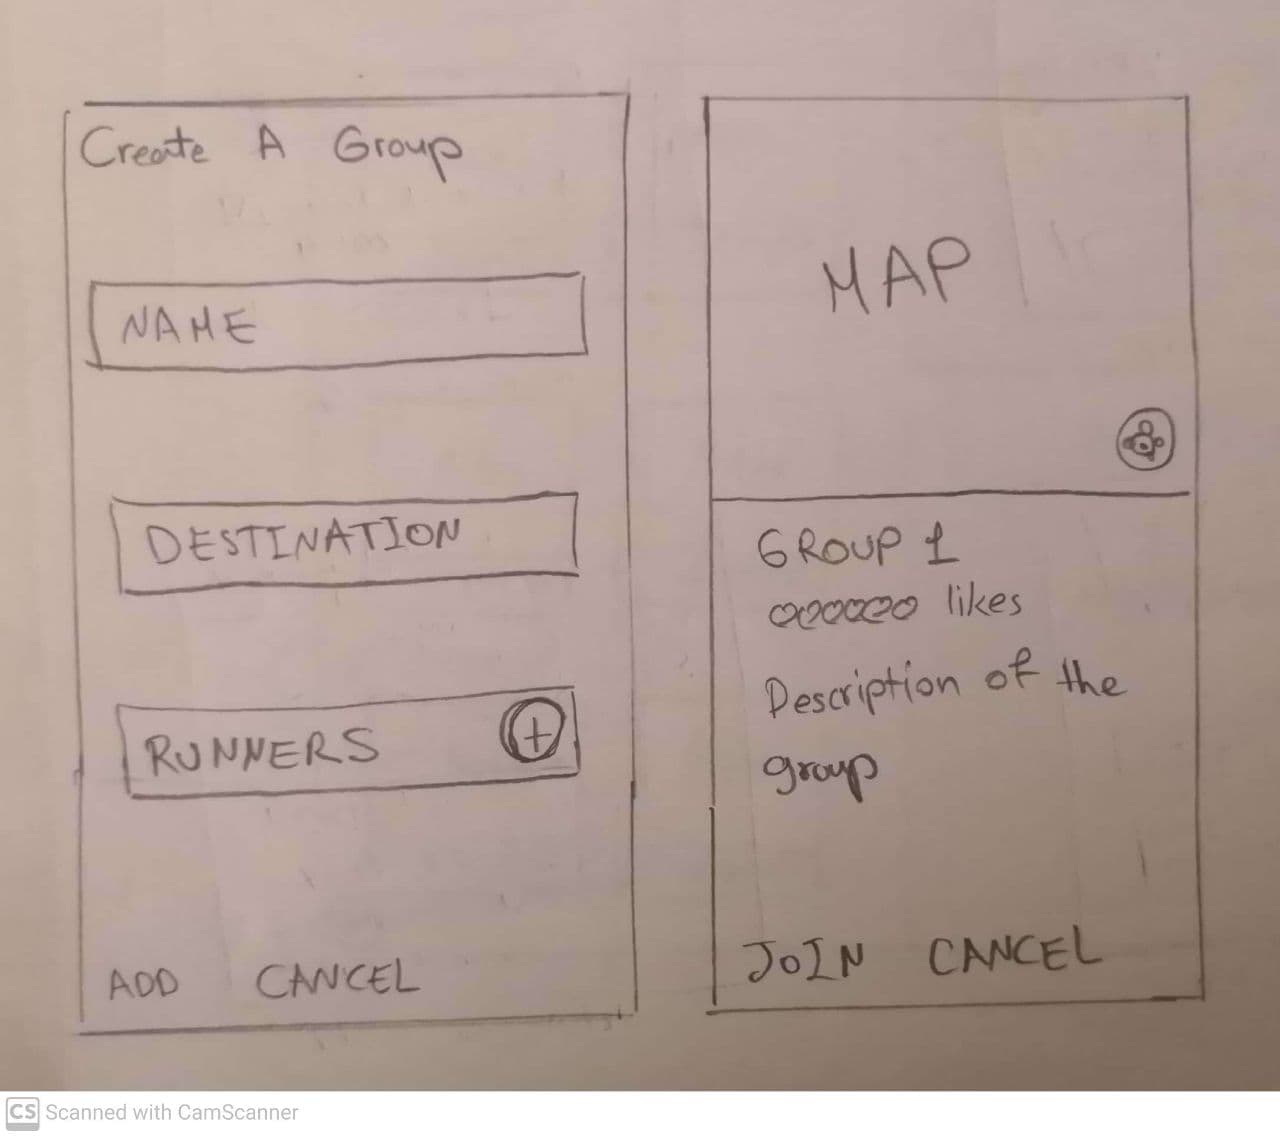 Create A Group
NAME
DESTINATION
RUNNERS +
ADD CANCEL
MAP
GROUP 1
likes
Description of the
group
JOIN CANCEL
CS Scanned with CamScanner